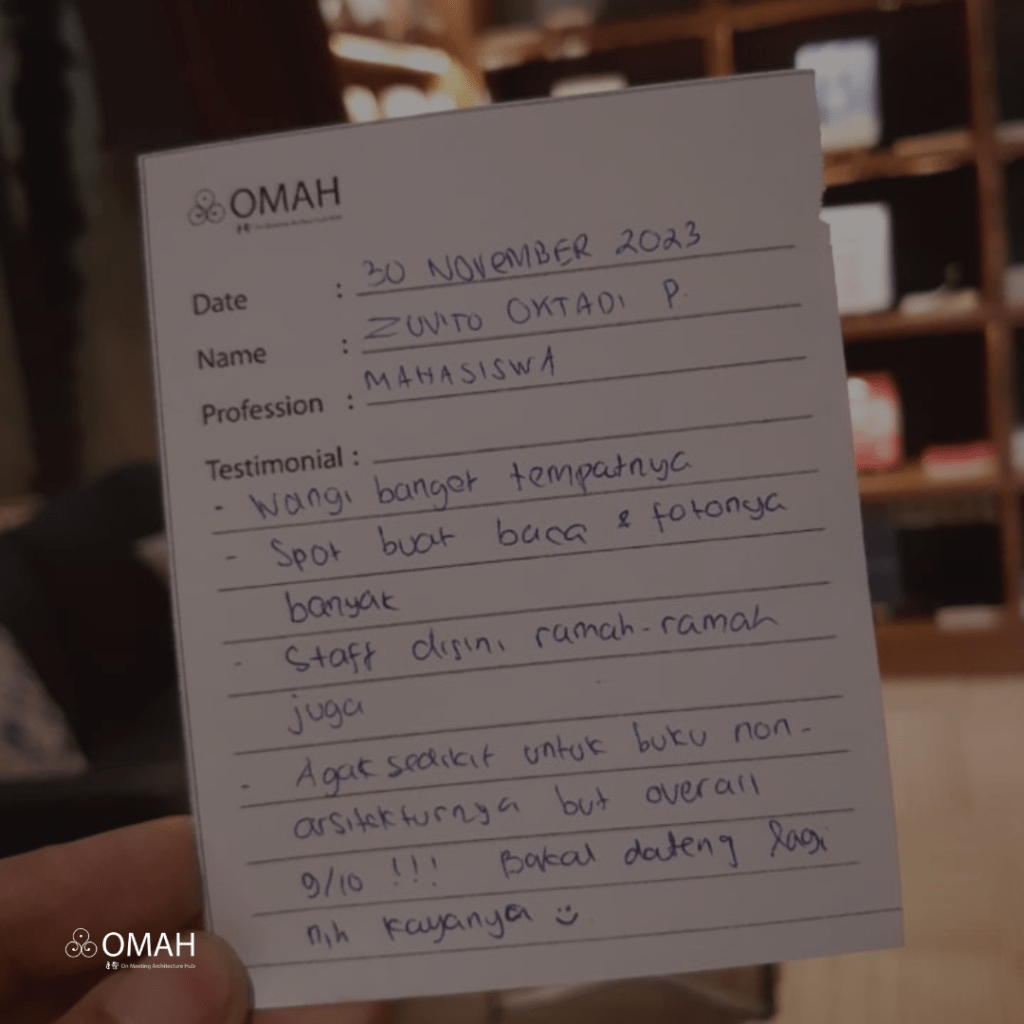 OMAH
Date : 30 NOVEMBER 2023
Name : ZUVITO OKTADI P.
Profession : MAHASISWA
Testimonial :
- Wangi banget tempatnya
- Spot buat baca & fotonya
banyak
- Staff disini ramah-ramah
juga
- Agak sedikit untuk buku non-
arsitekturnya but overall
9/10 !!! Bakal dateng lagi
nih kayanya
OMAH
On Meeting Architecture Hub